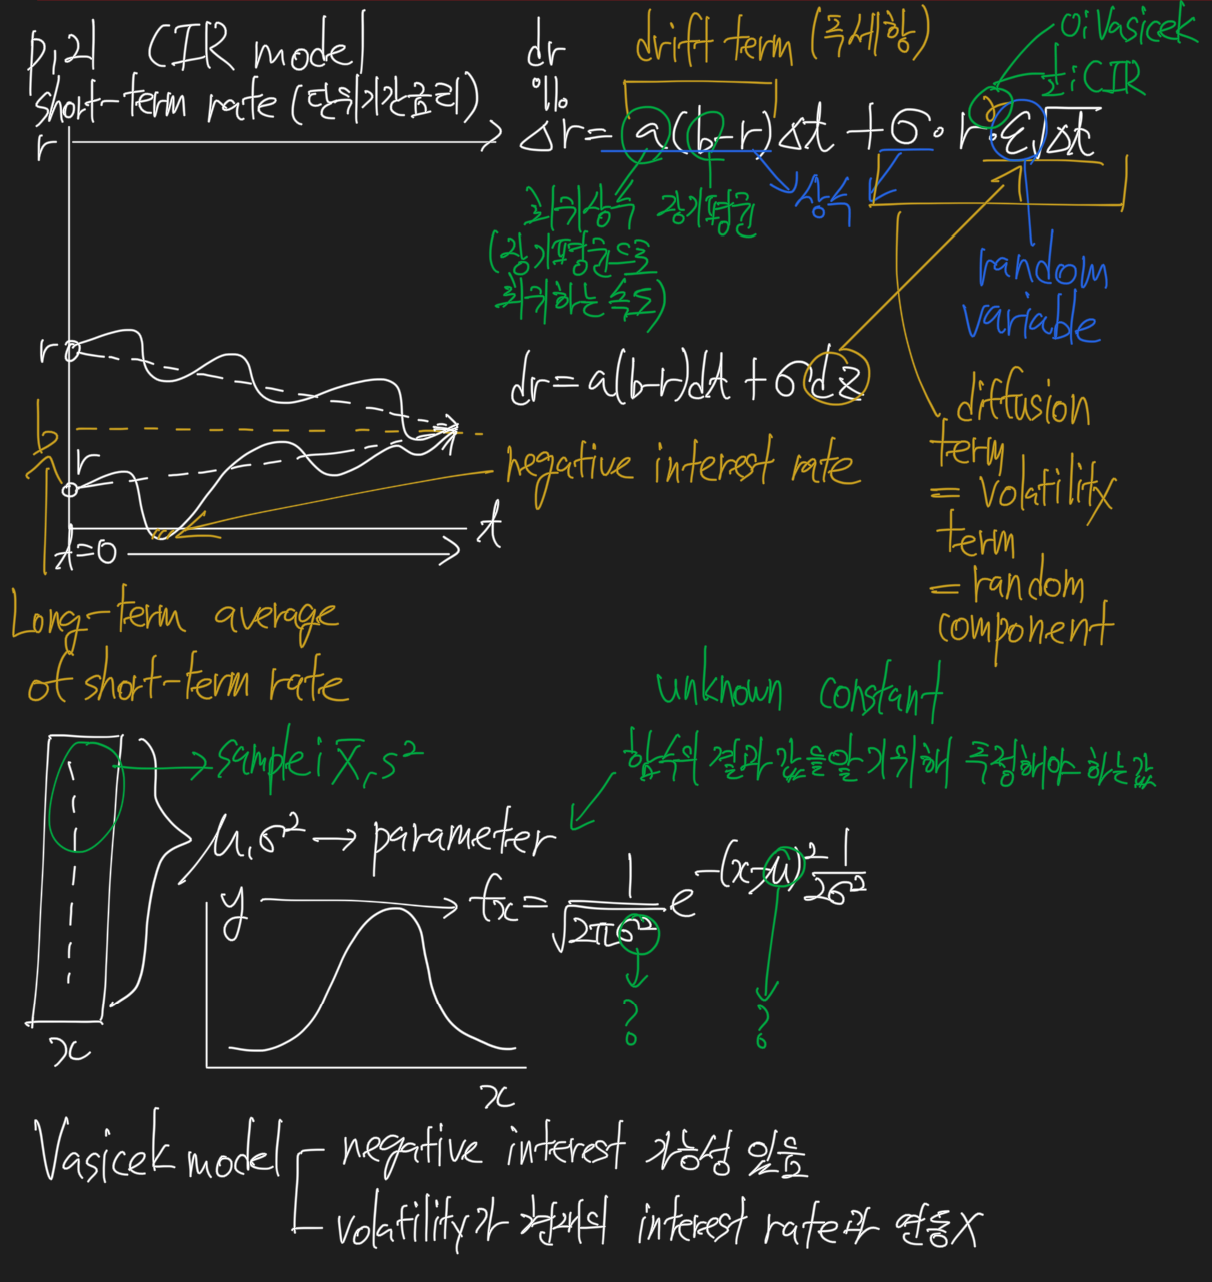 p.21 CIR model
short-term rate (단위기간금리)
r
dr
%
drift term (독세항)
0: Vasicek
1/2: CIR
Δr = a(b-r)Δt + σ · r^γ · ε√Δt
회귀상수
(장기평균으로
회귀하는 속도)
장기평균
상수
random
variable
r
b
r
t
t=0
dr = a(b-r)dt + σdz
negative interest rate
diffusion
term
= volatility
term
= random
component
Long-term average
of short-term rate
unknown constant
함수의 결과 값을 알기위해 측정해야 하는값
sample: X̄, s²
μ, σ² → parameter
y
fx = 1/√(2πσ²) e^(-(x-μ)² 1/(2σ²))
?
?
x
x
Vasicek model
negative interest 가능성 있음
volatility가 현재의 interest rate과 연동X